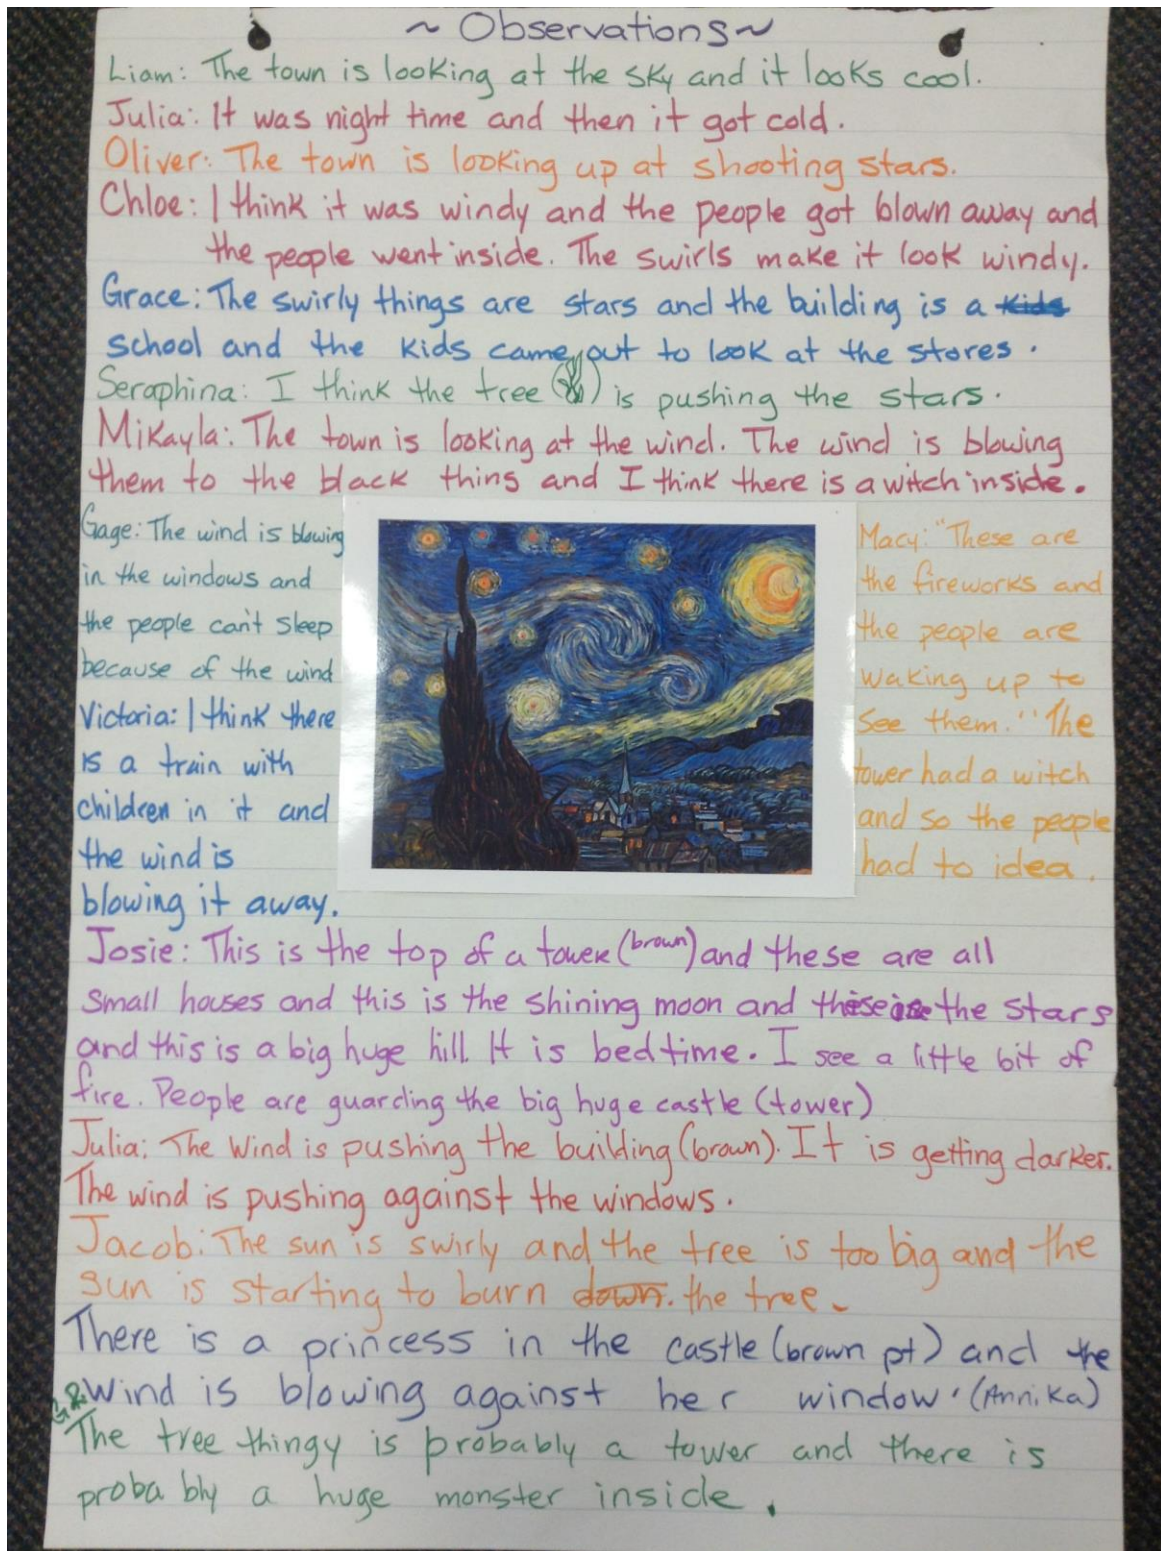 ~ Observations ~
Liam: The town is looking at the sky and it looks cool.
Julia: It was night time and then it got cold.
Oliver: The town is looking up at shooting stars.
Chloe: I think it was windy and the people got blown away and
the people went inside. The swirls make it look windy.
Grace: The swirly things are stars and the building is a kids
school and the kids came out to look at the stores.
Seraphina: I think the tree ( ) is pushing the stars.
Mikayla: The town is looking at the wind. The wind is blowing
them to the black thing and I think there is a witch inside.
Gage: The wind is blowing
in the windows and
the people can't sleep
because of the wind
Victoria: I think there
is a train with
children in it and
the wind is
blowing it away.
Macy: "These are
the fireworks and
the people are
waking up to
see them." "The
tower had a witch
and so the people
had to idea.
Josie: This is the top of a tower (brown) and these are all
small houses and this is the shining moon and the stars
and this is a big huge hill. It is bedtime. I see a little bit of
fire. People are guarding the big huge castle (tower)
Julia: The wind is pushing the building (brown). It is getting darker.
The wind is pushing against the windows.
Jacob: The sun is swirly and the tree is too big and the
sun is starting to burn down. the tree.
There is a princess in the castle (brown pt) and the
wind is blowing against her window. (Annika)
The tree thingy is probably a tower and there is
probably a huge monster inside.